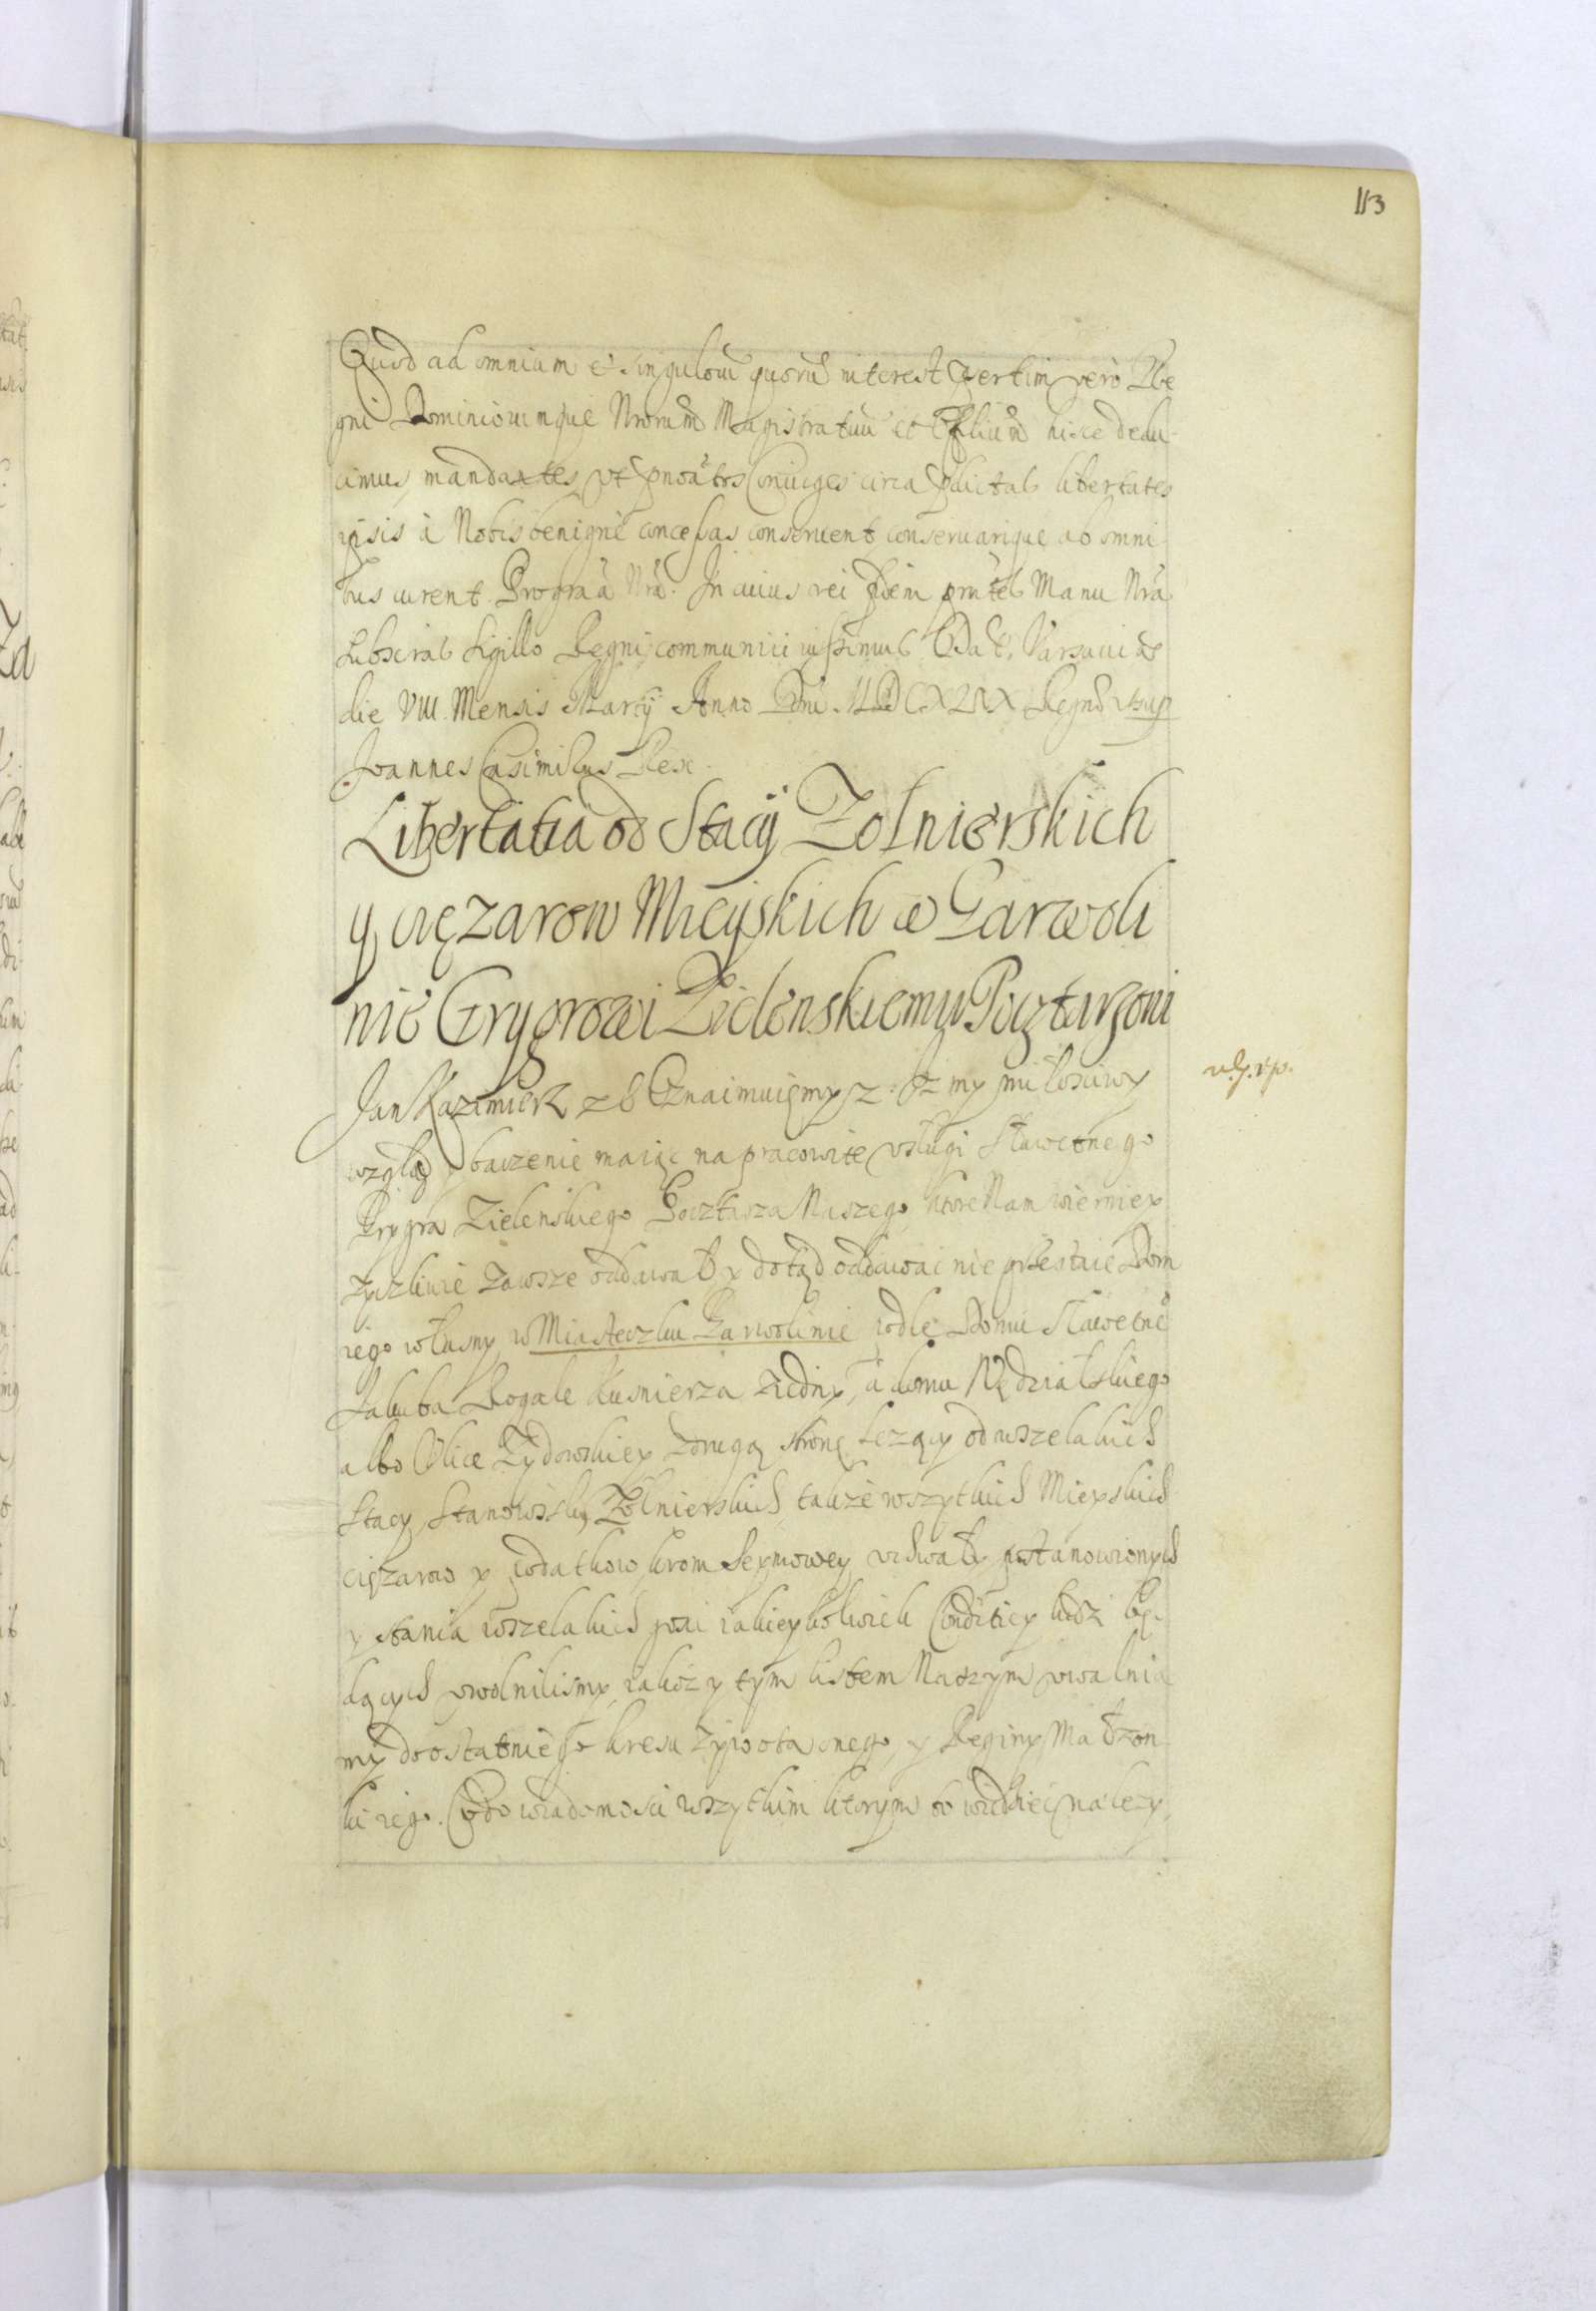 113
Quod ad omnium et singulorū quorū interest p̄sertim vero Re
gni Dominiorumque Nrorum Magistratuū et Offlium nōce dedu
cimus, mandantes, vt pnoātos Coniuges circa pdictas libertates
ipsis à Nobis benignè concessas conseruent, conseruarique ab omni
bus curent. Pro gr̄ā Nrā. In cuius rei fidem prn̄tes Manu Nrā
Subscras Sigillo Regni communiri iussimus Dat. Varsaviæ
die VIII. Mensis Marcÿ Anno Dni MDCXLIX Regnō vt sup
Joannes Casimirus Rex.
Libertatia od Stacÿ Zołnierskich
y cięzarow Mieyskich w Garwoli
nie Grygrowi Zielenskiemu Pocztarzowi
Jan Kazimierz z B Oznaimuięmy z. Iz my miłosciwy
wzgląd y baczenie maiąc na pracowite vsługi Sławetnego
Grygra Zielenskiego Pocztarza Naszego, ktore Nam wiernie y
zyczliwie zawsze oddawał y dotąd oddawac nie przestaie Dom
iego własny w Miasteczku Garwolinie podle Domu Sławetneº
Jakuba Rogale kusnierza ziedny, a domu Nędzialskiego
albo Vlice Zydowskiey zdrugą stronę lezący od wszelakich
Stacy, Stanowisk, Zołnierskich, takze wszytkich Mieyskich
cięzarow y podatkow, krom Seymowey vchwały postanowionych
y stania wszelakich gosci iakieykolwiek Conditiey ludzi bę-
dących vwolnilismy, iakoz y tym listem Naszym vwalnia
my do ostatniego kresu zywota onego, y Reginy Małzon
ki iego. Co do wiadomosci wszytkim ktorym to wiedziec nalezy,